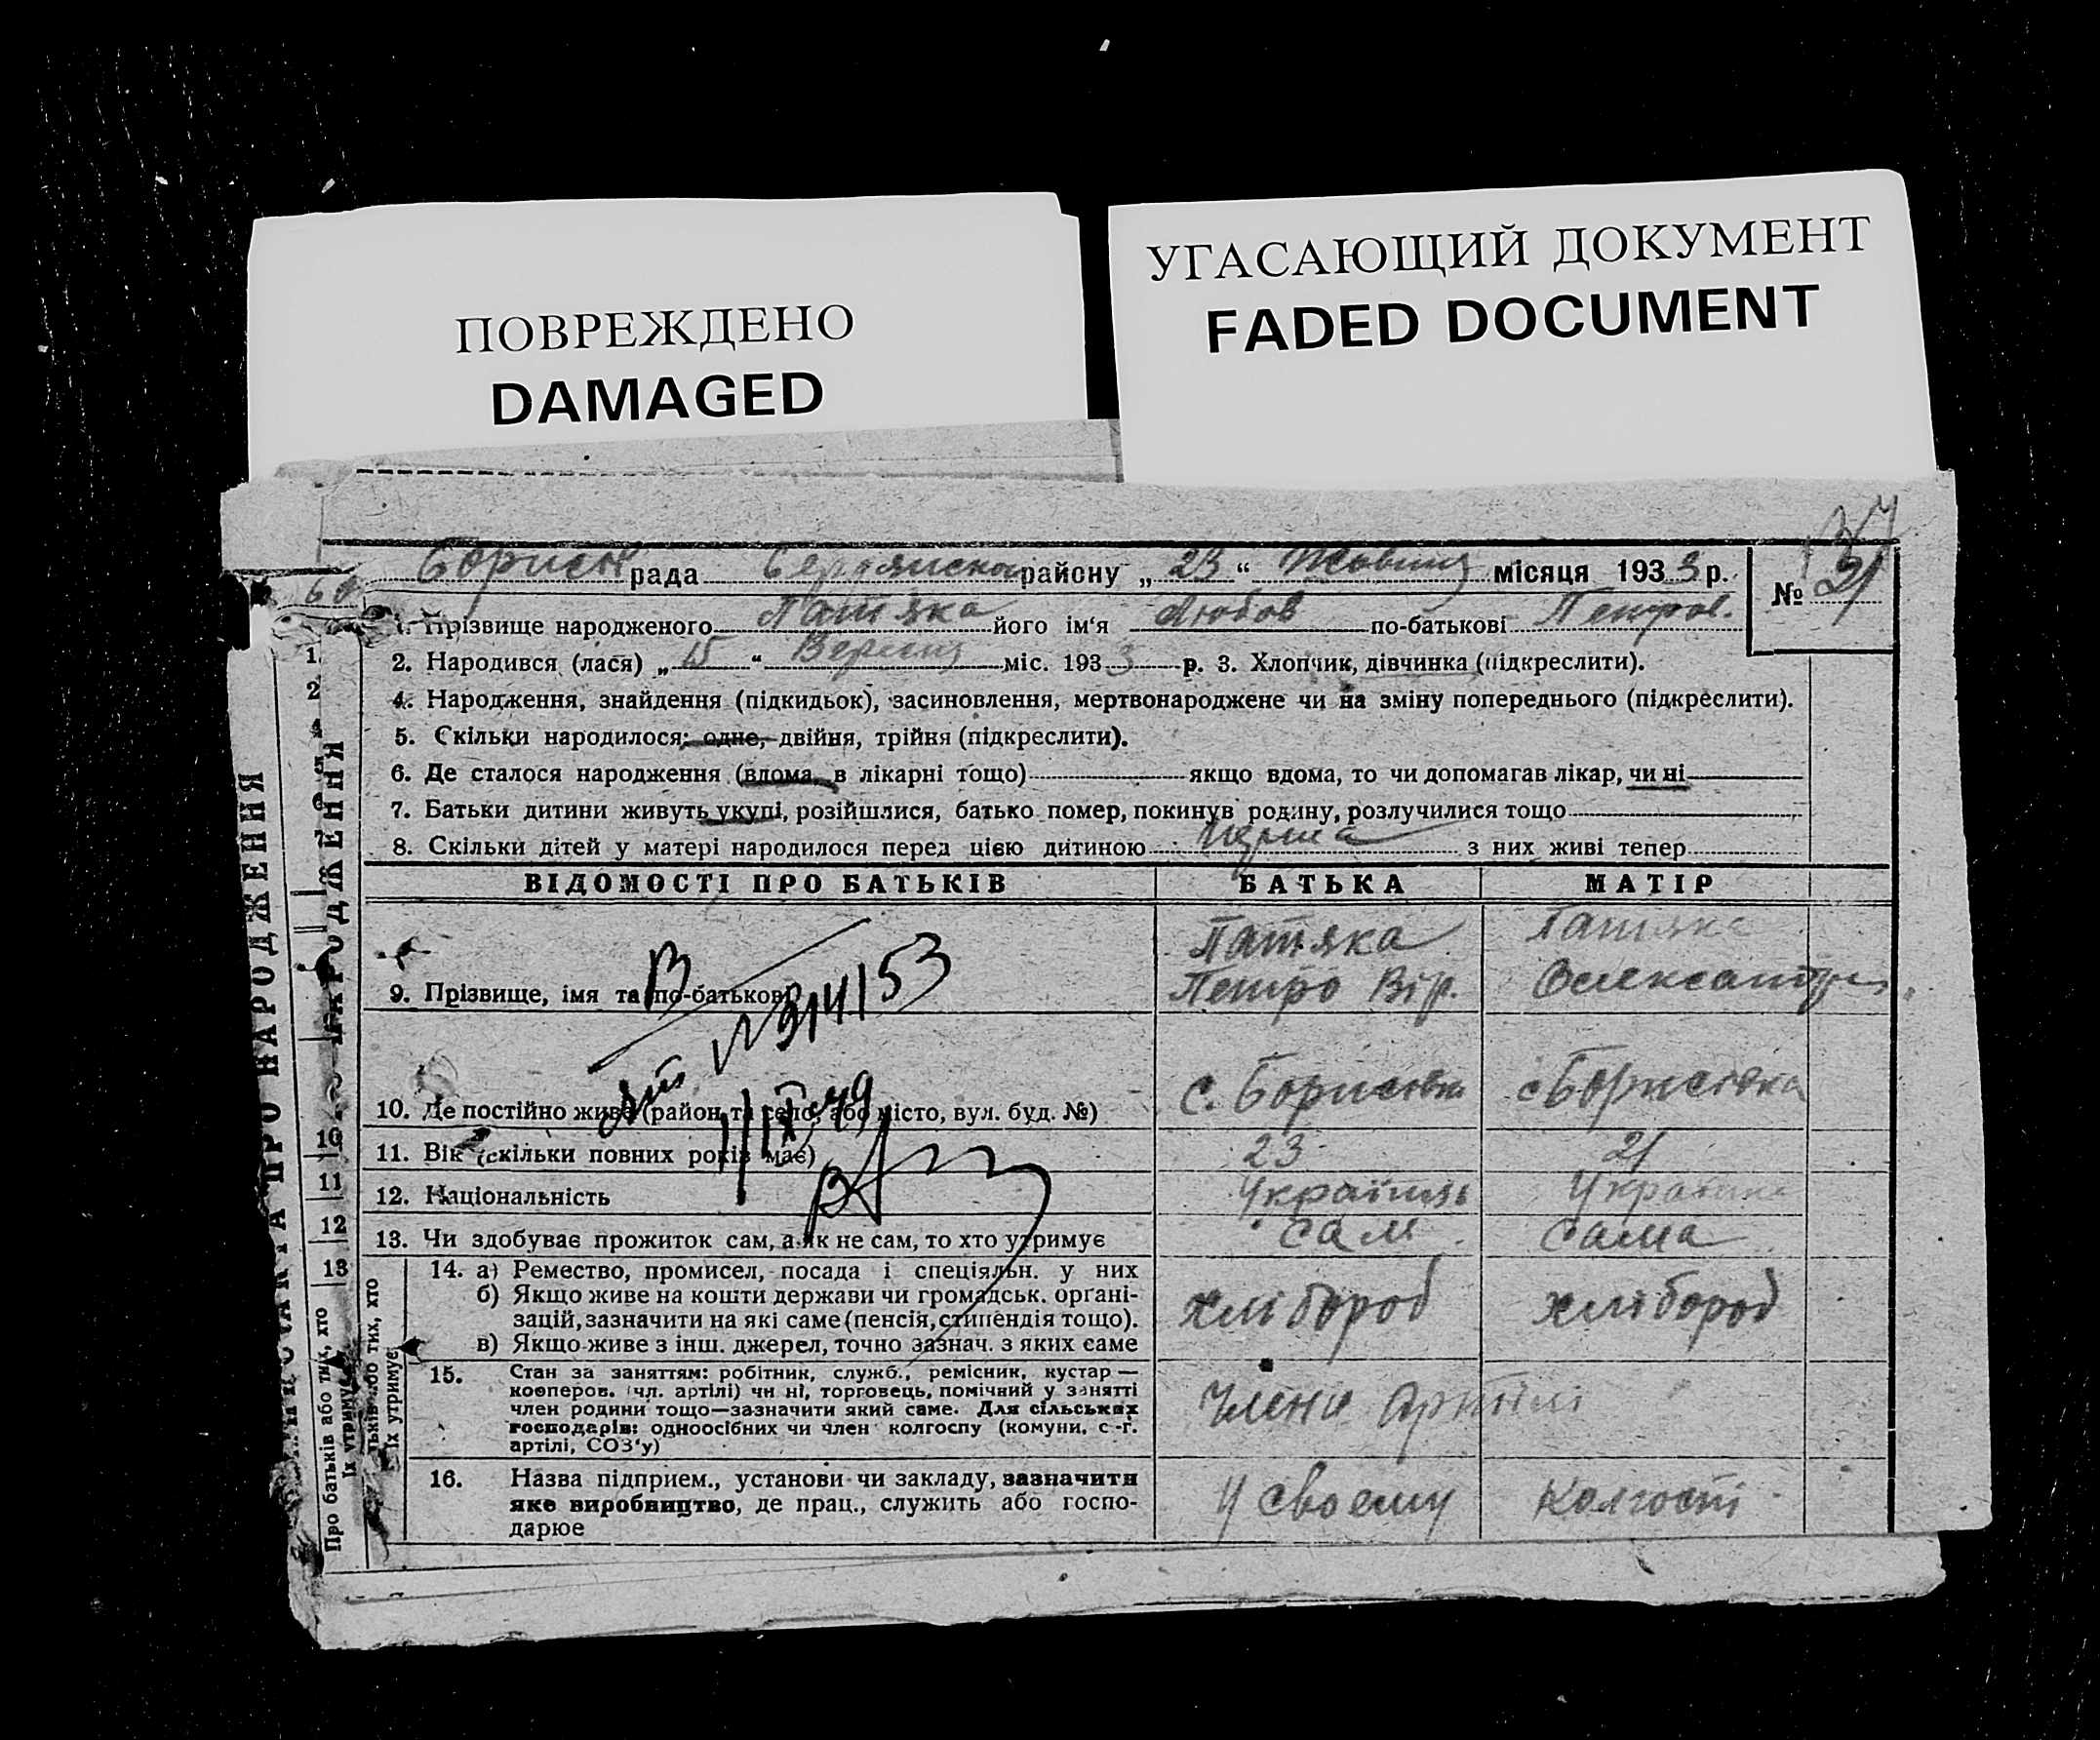 ПОВРЕЖДЕНО
DAMAGED
УГАСАЮЩИЙ ДОКУМЕНТ
FADED DOCUMENT
рада району „ 23 “ місяця 193 3 р. № 21
1. Прізвище народженого Патяка його ім‘я Любов по-батькові Петров.
2. Народився (лася) „ 15 “ міс. 193 3 р. 3. Хлопчик, дівчинка (підкреслити).
4. Народження, знайдення (підкидьок), засиновлення, мертвонароджене чи на зміну попереднього (підкреслити).
5. Скільки народилося: одне, двійня, трійня (підкреслити).
6. Де сталося народження (вдома, в лікарні тощо) якщо вдома, то чи допомагав лікар, чи ні
7. Батьки дитини живуть укупі, розійшлися, батько помер, покинув родину, розлучилися тощо
8. Скільки дітей у матері народилося перед цією дитиною перша з них живі тепер
ВІДОМОСТІ ПРО БАТЬКІВ БАТЬКА МАТІР
Патяка Патяка
9. Прізвище, імя та по-батькові Петро
№ 314153
10. Де постійно живе (район та село, або місто, вул. буд. №) с. Борисівка с Борисівка
11. Вік (скільки повних років має) 23 21
12. Національність
13. Чи здобуває прожиток сам, а як не сам, то хто утримує сам сама
14. а) Ремество, промисел, посада і спеціяльн. у них
б) Якщо живе на кошти держави чи громадськ. органі-
зацій, зазначити на які саме (пенсія, стипендія тощо). хлібороб хлібороб
в) Якщо живе з інш. джерел, точно зазнач. з яких саме
15. Стан за заняттям: робітник, служб., ремісник, кустар —
кооперов. (чл. артілі) чи ні, торговець, помічний у занятті
член родини тощо—зазначити який саме. Для сільських
господарів: одноосібних чи член колгоспу (комуни, с-г.
артілі, СОЗ‘у)
Члени артілі
16. Назва підприєм., установи чи закладу, зазначити
яке виробництво, де прац., служить або госпо-
дарює
у своему колгоспі
НАРОДЖЕННЯ
ПРО НАРОДЖЕННЯ
1
2
4
10
11
12
13
Про батьків або тих, хто
їх утримує
їх утримує